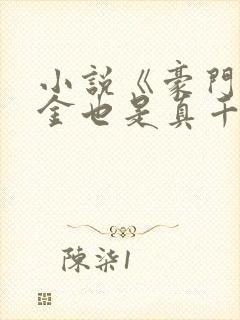 小說《豪門
金也是真千
陳柒1